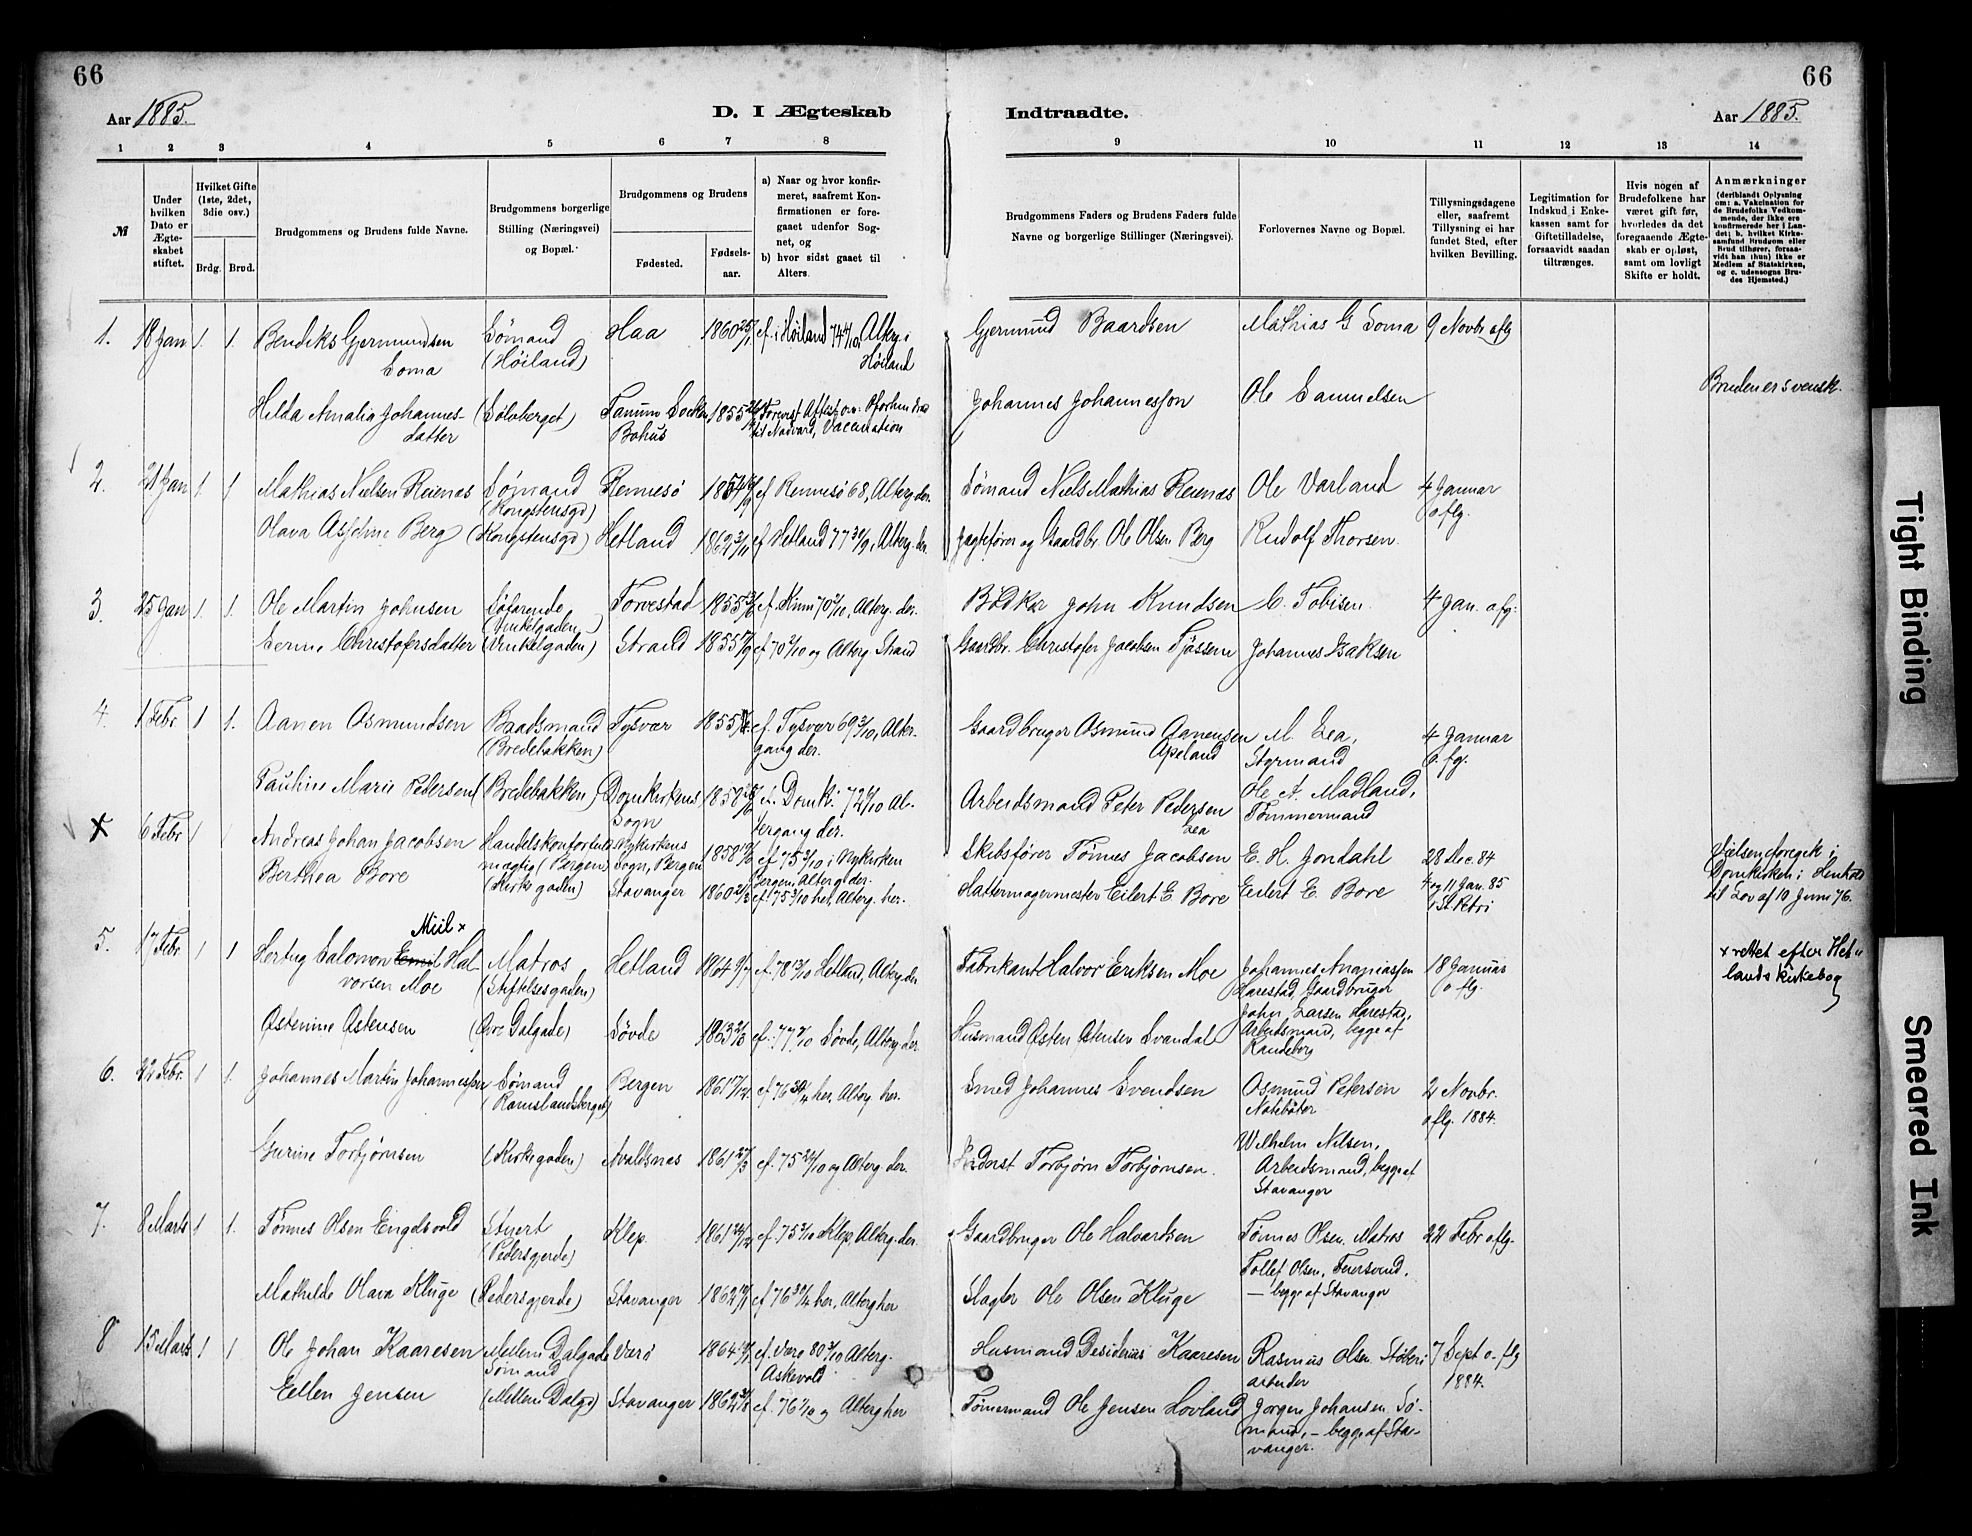 66
66
Aar 1885.
D. I Ægteskab
Indtraadte.
Aar 1885.
1 2 3 4 5 6 7 8 9 10 11 12 13 14
№
Under hvilken Dato er Ægteskabet stiftet.
Hvilket Gifte (1ste, 2det, 3die osv.)
Brdg. Brud.
Brudgommens og Brudens fulde Navne.
Brudgommens borgerlige Stilling (Næringsvei) og Bopæl.
Brudgommens og Brudens
Fødested.
Fødselsaar.
a) Naar og hvor konfirmeret, saafremt Konfirmationen er foregaaet udenfor Sognet, og
b) hvor sidst gaaet til Alters.
Brudgommens Faders og Brudens Faders fulde Navne og borgerlige Stillinger (Næringsvei).
Forlovernes Navne og Bopæl.
Tillysningsdagene eller, saafremt Tillysning ei har fundet Sted, efter hvilken Bevilling.
Legitimation for Indskud i Enkekassen samt for Giftetilladelse, forsaavidt saadan tiltrænges.
Hvis nogen af Brudefolkene har været gift før, hvorledes da det foregaaende Ægteskab er opløst, samt om lovligt Skifte er holdt.
Anmærkninger
(deriblandt Oplysning om: a. Vakcination for de Brudefolks Vedkommende, der ikke ere konfirmerede her i Landet; b. hvilket Kirkesamfund Brudgom eller Brud tilhører, forsaavidt han (hun) ikke er Medlem af Statskirken, og c. udensogns Brudes Hjemsted.)
1. 18 Jan 1. 1. Bendiks Gjermundsen Soma Sømand (Høiland) Haa 1860 cf. i Høiland 74 Altrg. i Høiland Gjermund Baardsen Mathias G Soma 9 Novbr. oflg
Hilda Amalia Johannesdatter (Sølvberget) Tanum Socken Bohus 1855 Vaccination Johannes Johannesson Ole Samuelsen Bruden er svensk.
2. 21 Jan 1 1 Mathias Nielsen Reienes Sømand (Kongstensgd) Rennesø 1854 cf Rennesø 68, Alterg. der. Sømand Niels Mathias Reienes Ole Varland 4 Januar oflg.
Olava Asseline Berg (Kongstensgd) Hetland 1862 cf Hetland 77, Alterg. der. Jagtefører og Gaardbr. Ole Olsen Berg Rudolf Thorsen
3. 25 Jan 1. 1. Ole Martin Johnsen Søfarende (Vinkelgaden) Torvestad 1855 cf. Kinn 70, Alterg. der. Bødker John Knudsen C. Tobisen. 4 Jan. oflg.
Serine Christofersdatter (Vinkelgaden) Strand 1855 cf 70 og Alterg. Strand Gaardbr. Christofer Jacobsen Tjøssem Johannes Isaksen
4. 1 Febr. 1 1. Aanen Osmundsen Baadsmand (Bredebakken) Tysvær 1855 cf. Tysvær 69 3/10, Altergang der. Gaardbruger Osmund Aanensen Apeland M. Lea, Styrmand 4 Januar o. flg.
Pauline Marie Pedersen (Bredebakken) Domkirkens Sogn 1858 cf. Domk. 72 Altergang der. Arbeidsmand Peter Pedersen Lea Ole A. Madland, Tømmermand
X 6 Febr 1 1 Andreas Johan Jacobsen Handelskonfortulmægtig (Bergen) Nykirkens Sogn, Bergen 1858 cf 75 5/10 i Nykirken Bergen, Alterg. der. Skibsfører Tønnes Jacobsen E. H. Jondahl 28 Dec. 84 4 og 11 Jan. 85 i St. Petri
Berthea Bore (Kirkegaden) Stavanger 1860 cf. 75 her, Alterg. her. Hattemagermester Eilert E. Bore Eilert E. Bore Vielsen foregik i Domkirken i Henhold til Lov af 10 Juni 76.
5. 17 Febr 1 1 Hertug Salomon Emil Miil x Halvorsen Moe Matros (Stiftelsesgaden) Hetland 1864 cf. 78 13/10 Hetland, Alterg. der Fabrikant Halvor Eriksen Moe Johannes Ananiassen Harestad, Gaardbruger 18 Januar o flg. x rettet efter Hetlands kirkebog
Ostenine Ostensen (Øvre Dalgade) Søvde 1863 cf. 77 Søvde, Alterg. der. Husmand Østen Ostensen Svandal John Larsen Harestad, Arbeidsmand, begge af Randeberg
6. 22 Febr. 1 1. Johannes Martin Johannessen Sømand (Ramslandsberget) Bergen 1861 cf 76 her, Alterg. her. Smed Johannes Svendsen Osmund Petersen Notebøter 2 Novbr. oflg. 1884.
Gurine Torbjørnsen (Kirkegaden) Avaldsnes 1861 cf. 75 og Alterg. der. Torbjørn Torbjørnsen. Wilhelm Nilsen, Arbeidsmand, begge af Stavanger
7. 8 Marts 1 1. Tønnes Olsen Engelsvold Stuert (Pedersgjerde) Klep 1861 cf. 75 Klep, Alterg. der. Gaardbruger Ole Halvardsen Tønnes Olsen Matros 22 Febr oflg.
Mathilde Olava Kluge (Pedersgjerde) Stavanger 1862 cf 76 her, Alterg her Slagter Ole Olsen Kluge Tollef Olsen, — begge af Stavanger
8 15 Marts 1 1 Ole Johan Kaaresen Mellem Dalgade Sømand Værø 1864 cf. Værø 80 Alterg. Askevold Husmand Desiderius Kaaresen Rasmus Olsen Støberiarbeider 7 Sept o. flg 1884.
Ellen Jensen (Mellem Dalgd) Stavanger 1862 cf. 76 og Alterg her Tømermand Ole Jensen Lovland Jørgen Johansen Sømand, — begge af Stavanger.
Tight Binding
Smeared Ink